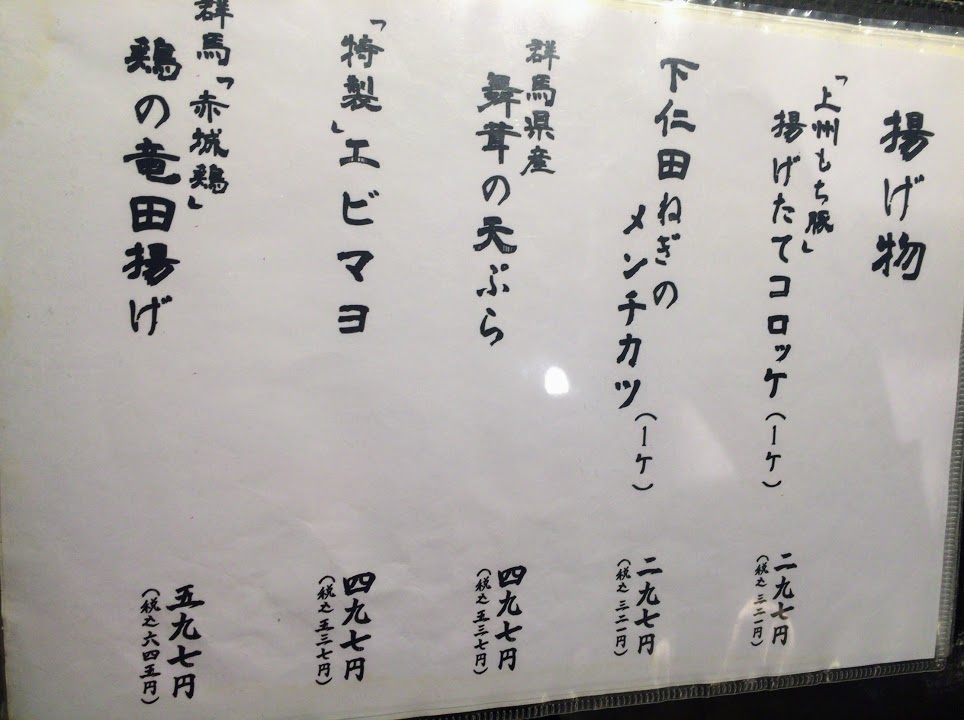 揚げ物
「上州もち豚」
揚げたてコロッケ(一ケ)
二九七円
(税込三二一円)
下仁田ねぎの
メンチカツ(一ケ)
二九七円
(税込三二一円)
群馬県産
舞茸の天ぷら
四九七円
(税込五三七円)
「特製」エビマヨ
四九七円
(税込五三七円)
群馬「赤城鶏」
鶏の竜田揚げ
五九七円
(税込六四五円)